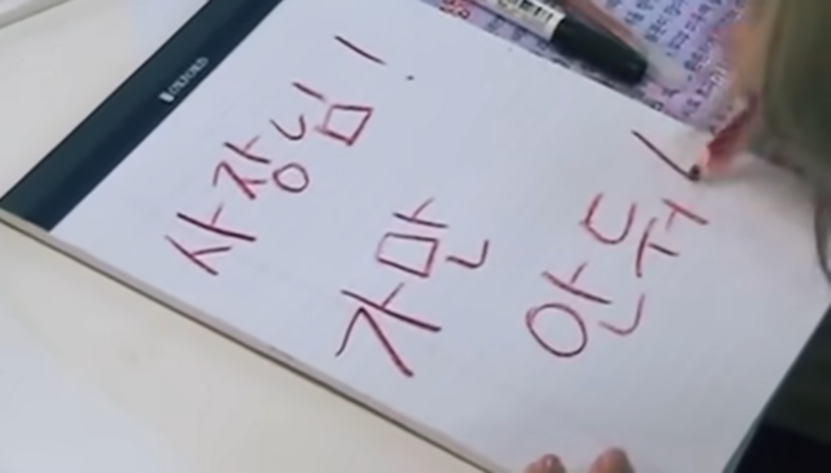 OXFORD
사장님!
가만
안둬!